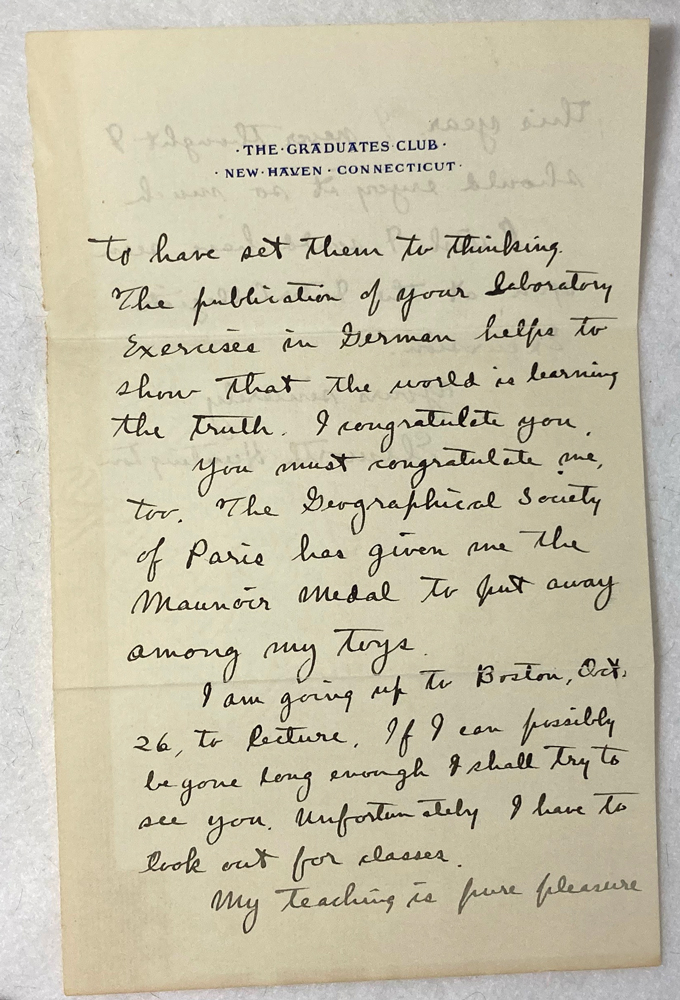 · THE · GRADUATES · CLUB ·
· NEW · HAVEN · CONNECTICUT ·
to have set them to thinking.
The publication of your Laboratory
Exercises in German helps to
show that the world is learning
the truth. I congratulate you.
You must congratulate me,
too. The Geographical Society
of Paris has given me the
Maunoir Medal to put away
among my toys.
I am going up to Boston, Oct.
26, to lecture. If I can possibly
be gone long enough I shall try to
see you. Unfortunately I have to
look out for classes.
My teaching is pure pleasure